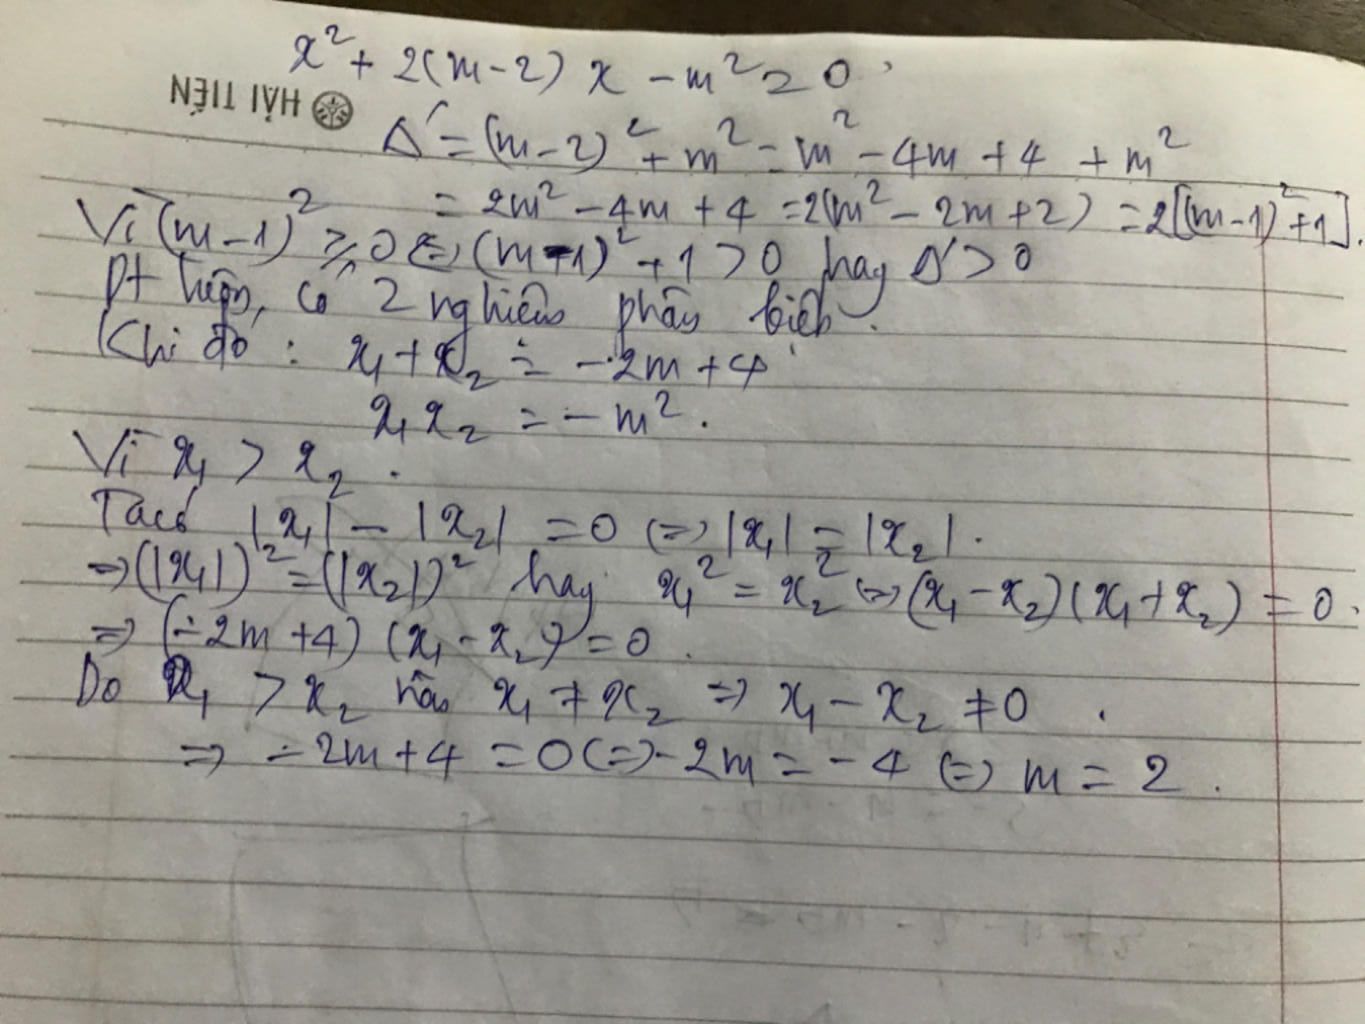 x² + 2(m-2)x - m² = 0
HẢI TIẾN
Δ' = (m-2)² + m² = m² - 4m + 4 + m²
= 2m² - 4m + 4 = 2(m² - 2m + 2) = 2[(m-1)² + 1].
Vì (m-1)² ≥ 0 ⇔ (m-1)² + 1 > 0 hay Δ' > 0
pt luôn có 2 nghiệm phân biệt.
Khi đó: x₁ + x₂ = -2m + 4
x₁x₂ = -m².
Vì x₁ > x₂.
Ta có |x₁| - |x₂| = 0 ⇔ |x₁| = |x₂|.
⇒ (|x₁|)² = (|x₂|)² hay x₁² = x₂² ⇔ (x₁ - x₂)(x₁ + x₂) = 0.
⇒ (-2m + 4)(x₁ - x₂) = 0.
Do x₁ > x₂ nên x₁ ≠ x₂ ⇒ x₁ - x₂ ≠ 0.
⇒ -2m + 4 = 0 ⇔ -2m = -4 ⇔ m = 2.